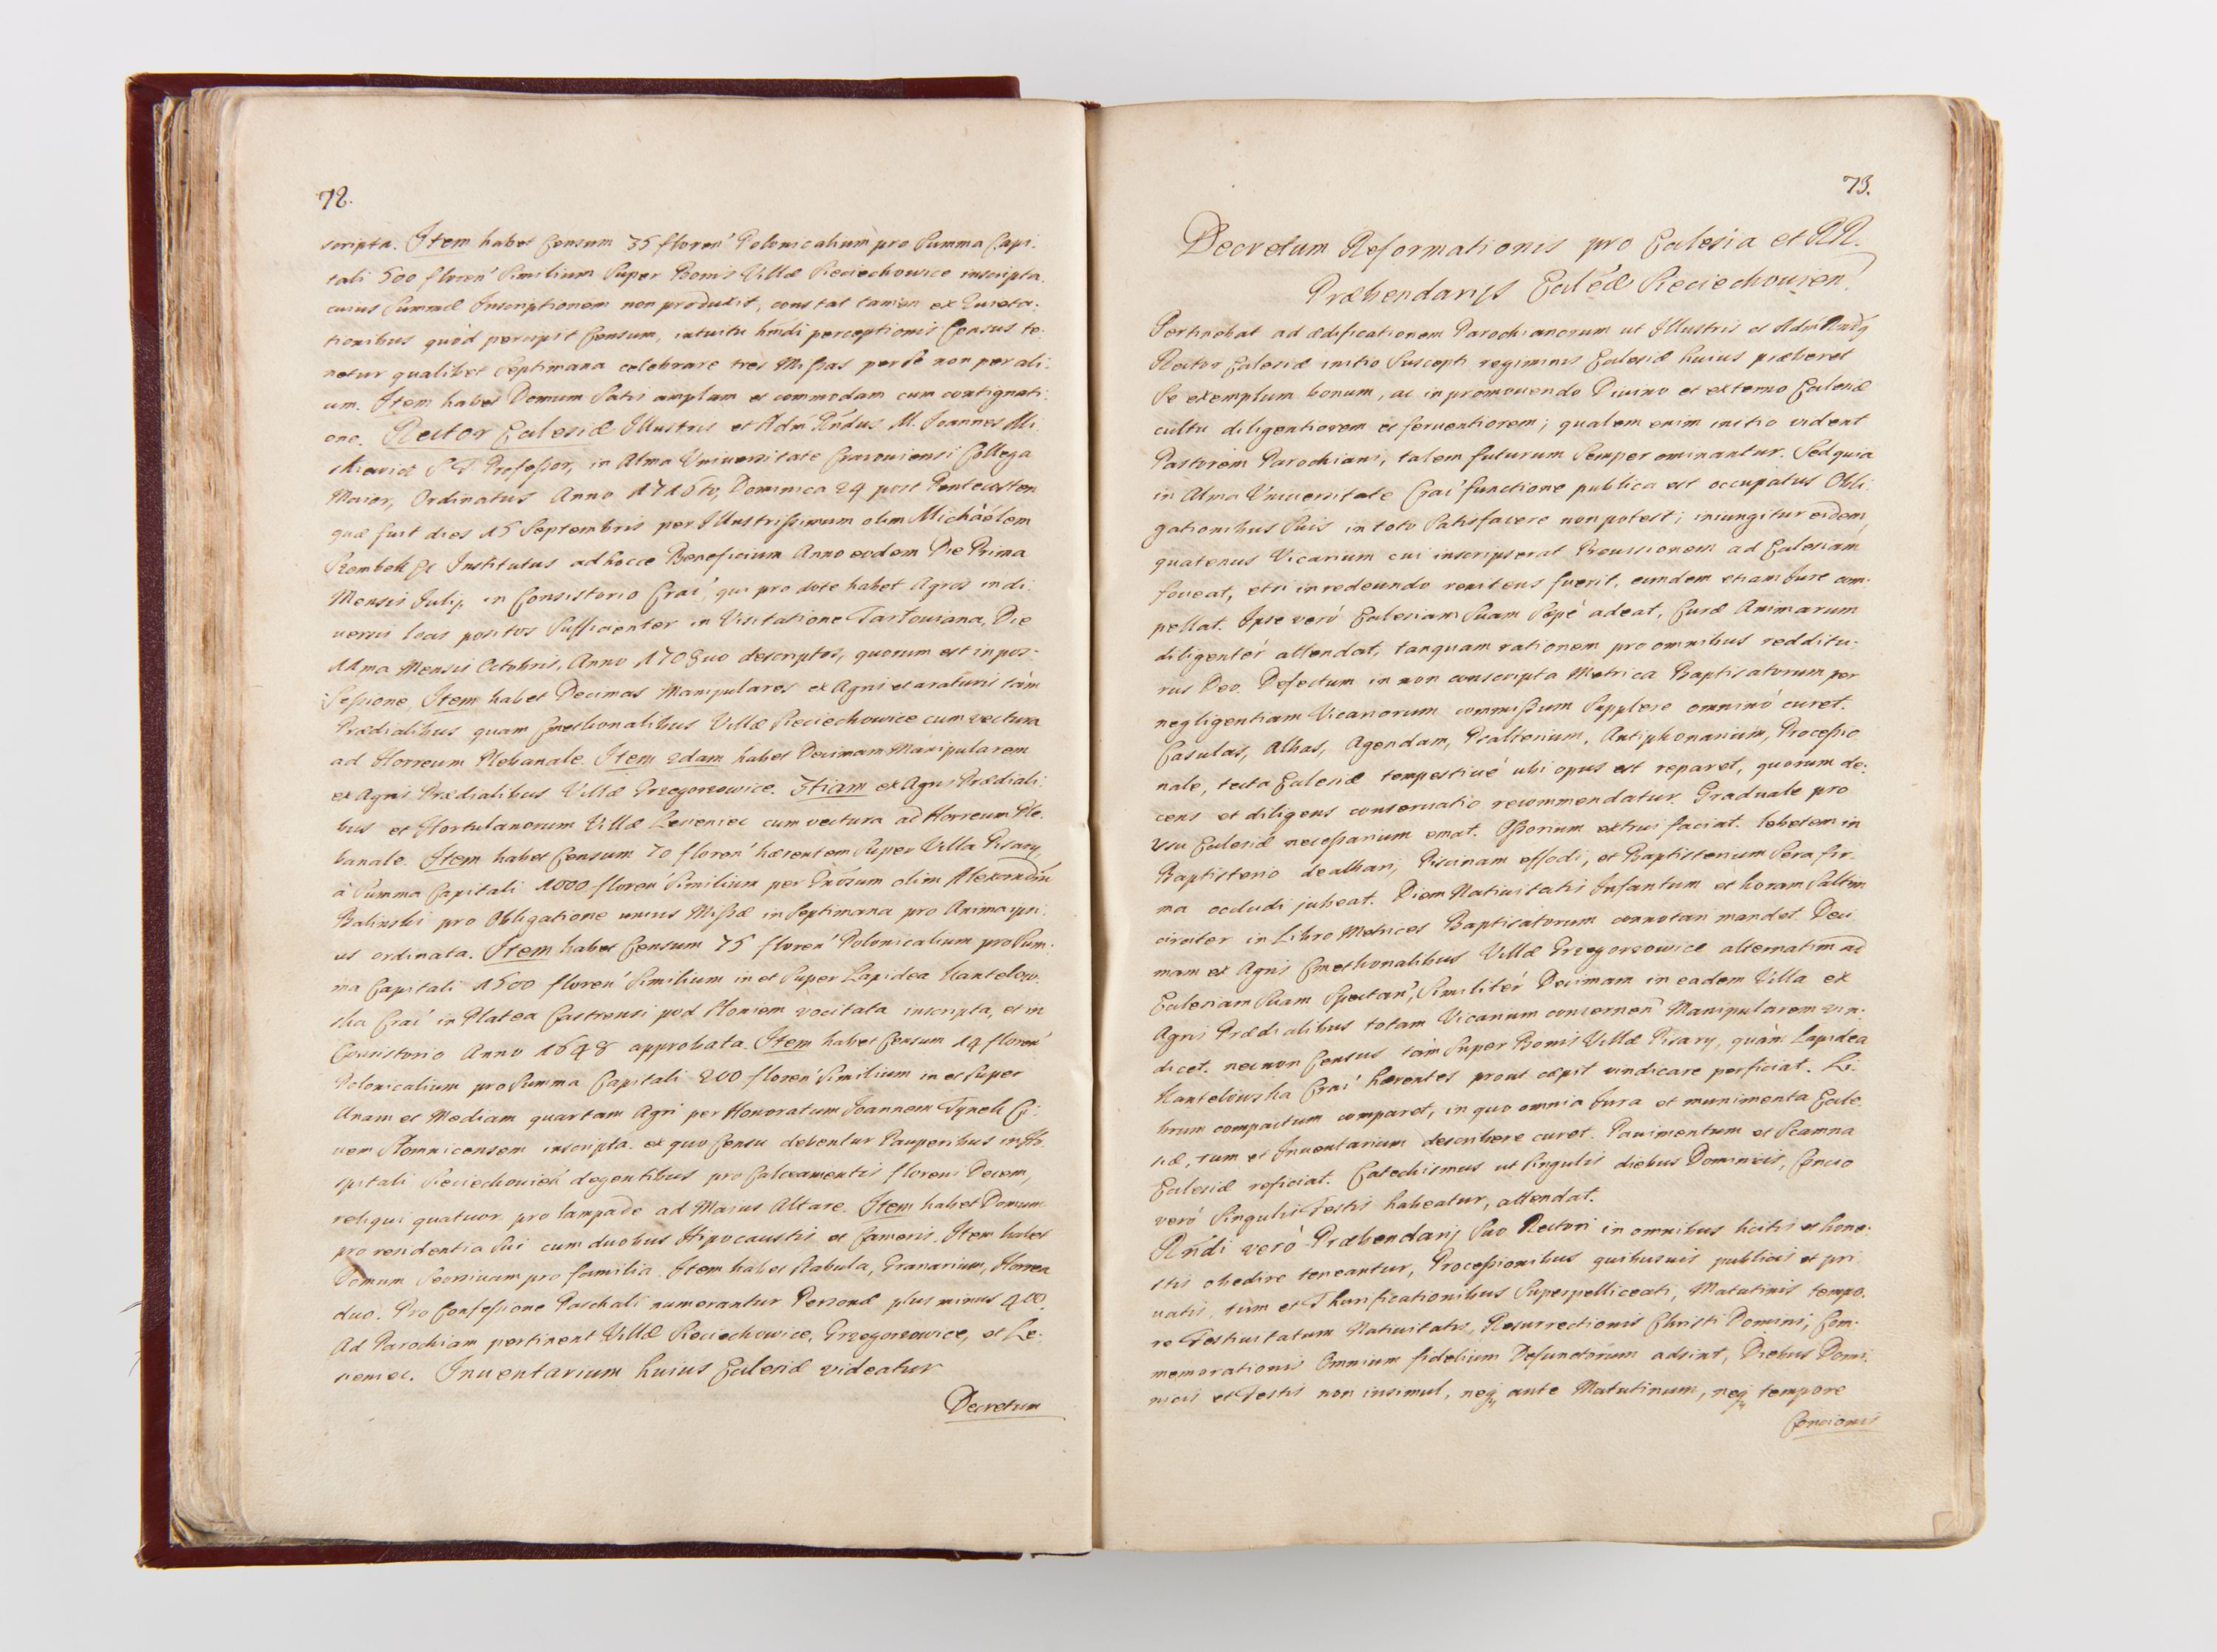 72.
scripta. Item habet Censum 35 floren' Polonicalium pro Summa Capi:
tali 500 floren' Similium Super Bonis Villæ Rieciechowice inscripta.
cuius Summæ Inscriptionem non produxit, constat tamen ex Quieta:
tionibus quòd percepit Censum, intuitu hmdi perceptionis Census te:
netur qualibet Septimana celebrare tres Missas per se non per ali:
um. Item habet Domum Satis amplam et commodam cum contignati:
one. Rector Ecclesiæ Illustris et Adm Rndus M. Joannes Mi
S T Professor, in Alma Universitate Cracoviensi Collega
Maior, Ordinatus Anno 1715to, Dominica 24 post Pentecosten
quæ fuit dies 15 Septembris per Illustrissimum olim Michäelem
Szembek Institutus ad hocce Beneficium Anno eodem Die Prima
Mensis Julij, in Consistorio Crac', qui pro dote habet Agros in di
versis locis positos Sufficienter in Visitatione Tarłouiana, Die
11ma Mensis Octobris, Anno 1708uo descriptos, quorum est in pos-
Sessione, Item habet Decimas Manipulares ex Agris et araturis tàm
Prædialibus quam Cmethonalibus Villæ Rieciechowice cum vectura
ad Horreum Plebanale. Item 2dam habet Decimam Manipularem
ex Agris Prædialibus Villæ Grzegorzowice. 3tiam ex Agris Prædiali:
bus et Hortulanorum Villæ Leveniec cum vectura ad Horreum Ple:
banale. Item habet Censum 70 floren' hærentem Super Villa Pisary,
à Summa Capitali 1000 floren' Similium per Gnosum olim Alexandrũ
Baliński pro Obligatione unius Missæ in Septimana pro Anima ipsi:
us ordinata. Item habet Censum 75 floren' Polonicalium pro Sum:
ma Capitali 1500 floren' Similium in et Super Lapidea Kantelow:
ska Crac' in Platea Castrensi pod Słoniem vocitata inscripta, et in
Consistorio Anno 1648 approbata. Item habet Censum 14 floren'
Polonicalium pro Summa Capitali 200 floren' Similium in et Super
Anam et Mediam quartam Agri per Honoratum Joannem Tynek Ci:
vem Słomnicensem inscripta. ex quo Censu debentur Pauperibus in Ho:
spitali Rieciechowien̄ degentibus pro Calceamentis floreni Decem,
reliqui quatuor pro lampade ad Maius Altare. Item habet Domum
pro residentia Sui cum duobus Hipocaustis et Cameris. Item habet
Domum Seorsivam pro familia. Item habet Stabula, Granarium, Horrea
duo. Pro Confessione Paschali numerantur Personæ plus minus 400.
Ad Parochiam pertinent Villæ Rieciechowice, Grzegorzowice, et Le:
veniec. Inventarium huius Ecclesiæ videatur
Decretum
73.
Decretum Reformationis pro Ecclesia et RR.
Præbendarijs Eccl'æ Rieciechovien'.
Pertinebat ad ædificationem Parochianorum ut Illustris et Adm Rndq
Rector Ecclesiæ initio Suscepti regiminis Ecclesiæ huius præberet
Se exemplum bonum, ac in promovendo Divino et externo Ecclesiæ
cultu diligentiorem et ferventiorem; qualem enim initio vident
Pastorem Parochiani, talem futurum Semper ominantur. Sed quia
in Alma Universitate Crac' functione publica est occupatus Obli:
gationibus Suis in toto Satisfacere non potest; iniungitur eidem,
quatenus Vicarium cui inscripserat Provisionem ad Ecclesiam
foveat, etsi in redeundo renitens fuerit, eundem etiam Jure com:
pellat. Ipse verò Ecclesiam Suam Sæpè adeat, Curæ Animarum
diligentèr attendat, tanquam rationem pro omnibus redditu:
rus Deo. Defectum in non conscripta Metrica Baptisatorum per
negligentiam Vicariorum commissum Supplere omninò curet.
Casulas, Albas, Agendam, Psalterium, Antiphonarium, Processio
nale, tecta Ecclesiæ tempestivè ubi opus est reparet, quorum de:
cens et diligens conservatio recommendatur. Graduale pro
Usu Ecclesiæ necessarium emat. Ossorium extrui faciat. lebetem in
Baptisterio dealbari, Piscinam effodi, et Baptisterium Sera fir
ma occludi jubeat. Diem Nativitatis Infantum et horam Saltem
circiter in Libro Metrices Baptisatorum connotari mandet. Deci
mam ex Agris Cmethonalibus Villæ Grzegorzowice alternatim ad
Ecclesiam Suam Spectan', Similitèr Decimam in eadem Villa ex
Agris Prædialibus totam Vicarium concernen' Manipularem vin:
dicet. necnon Census tàm Super Bonis Villæ Pisary, quàm Lapidea
Kantelowska Crac' hærentes prout cæpit vindicare perficiat. Li:
brum compactum comparet, in quo omnia Jura et munimenta Eccle
siæ, tum et Inventarium describere curet. Pavimentum et Scamna
Ecclesiæ reficiat. Catechismus ut Singulis diebus Dominicis, Concio
verò Singulis Festis habeatur, attendat.
Rndi verò Præbendarij Suo Rectori in omnibus licitis et hone:
stis obedire teneantur, Processionibus quibusvis publicis et pri
vatis, tum et Thurificationibus Superpelliceati, Matutinis tempo:
re Festivitatum Nativitatis, Resurrectionis Christi Domini, Com:
memorationis Omnium fidelium Defunctorum adsint, Diebus Domi:
nicis et Festis non insimul, neq; ante Matutinum, neq; tempore
Concionis